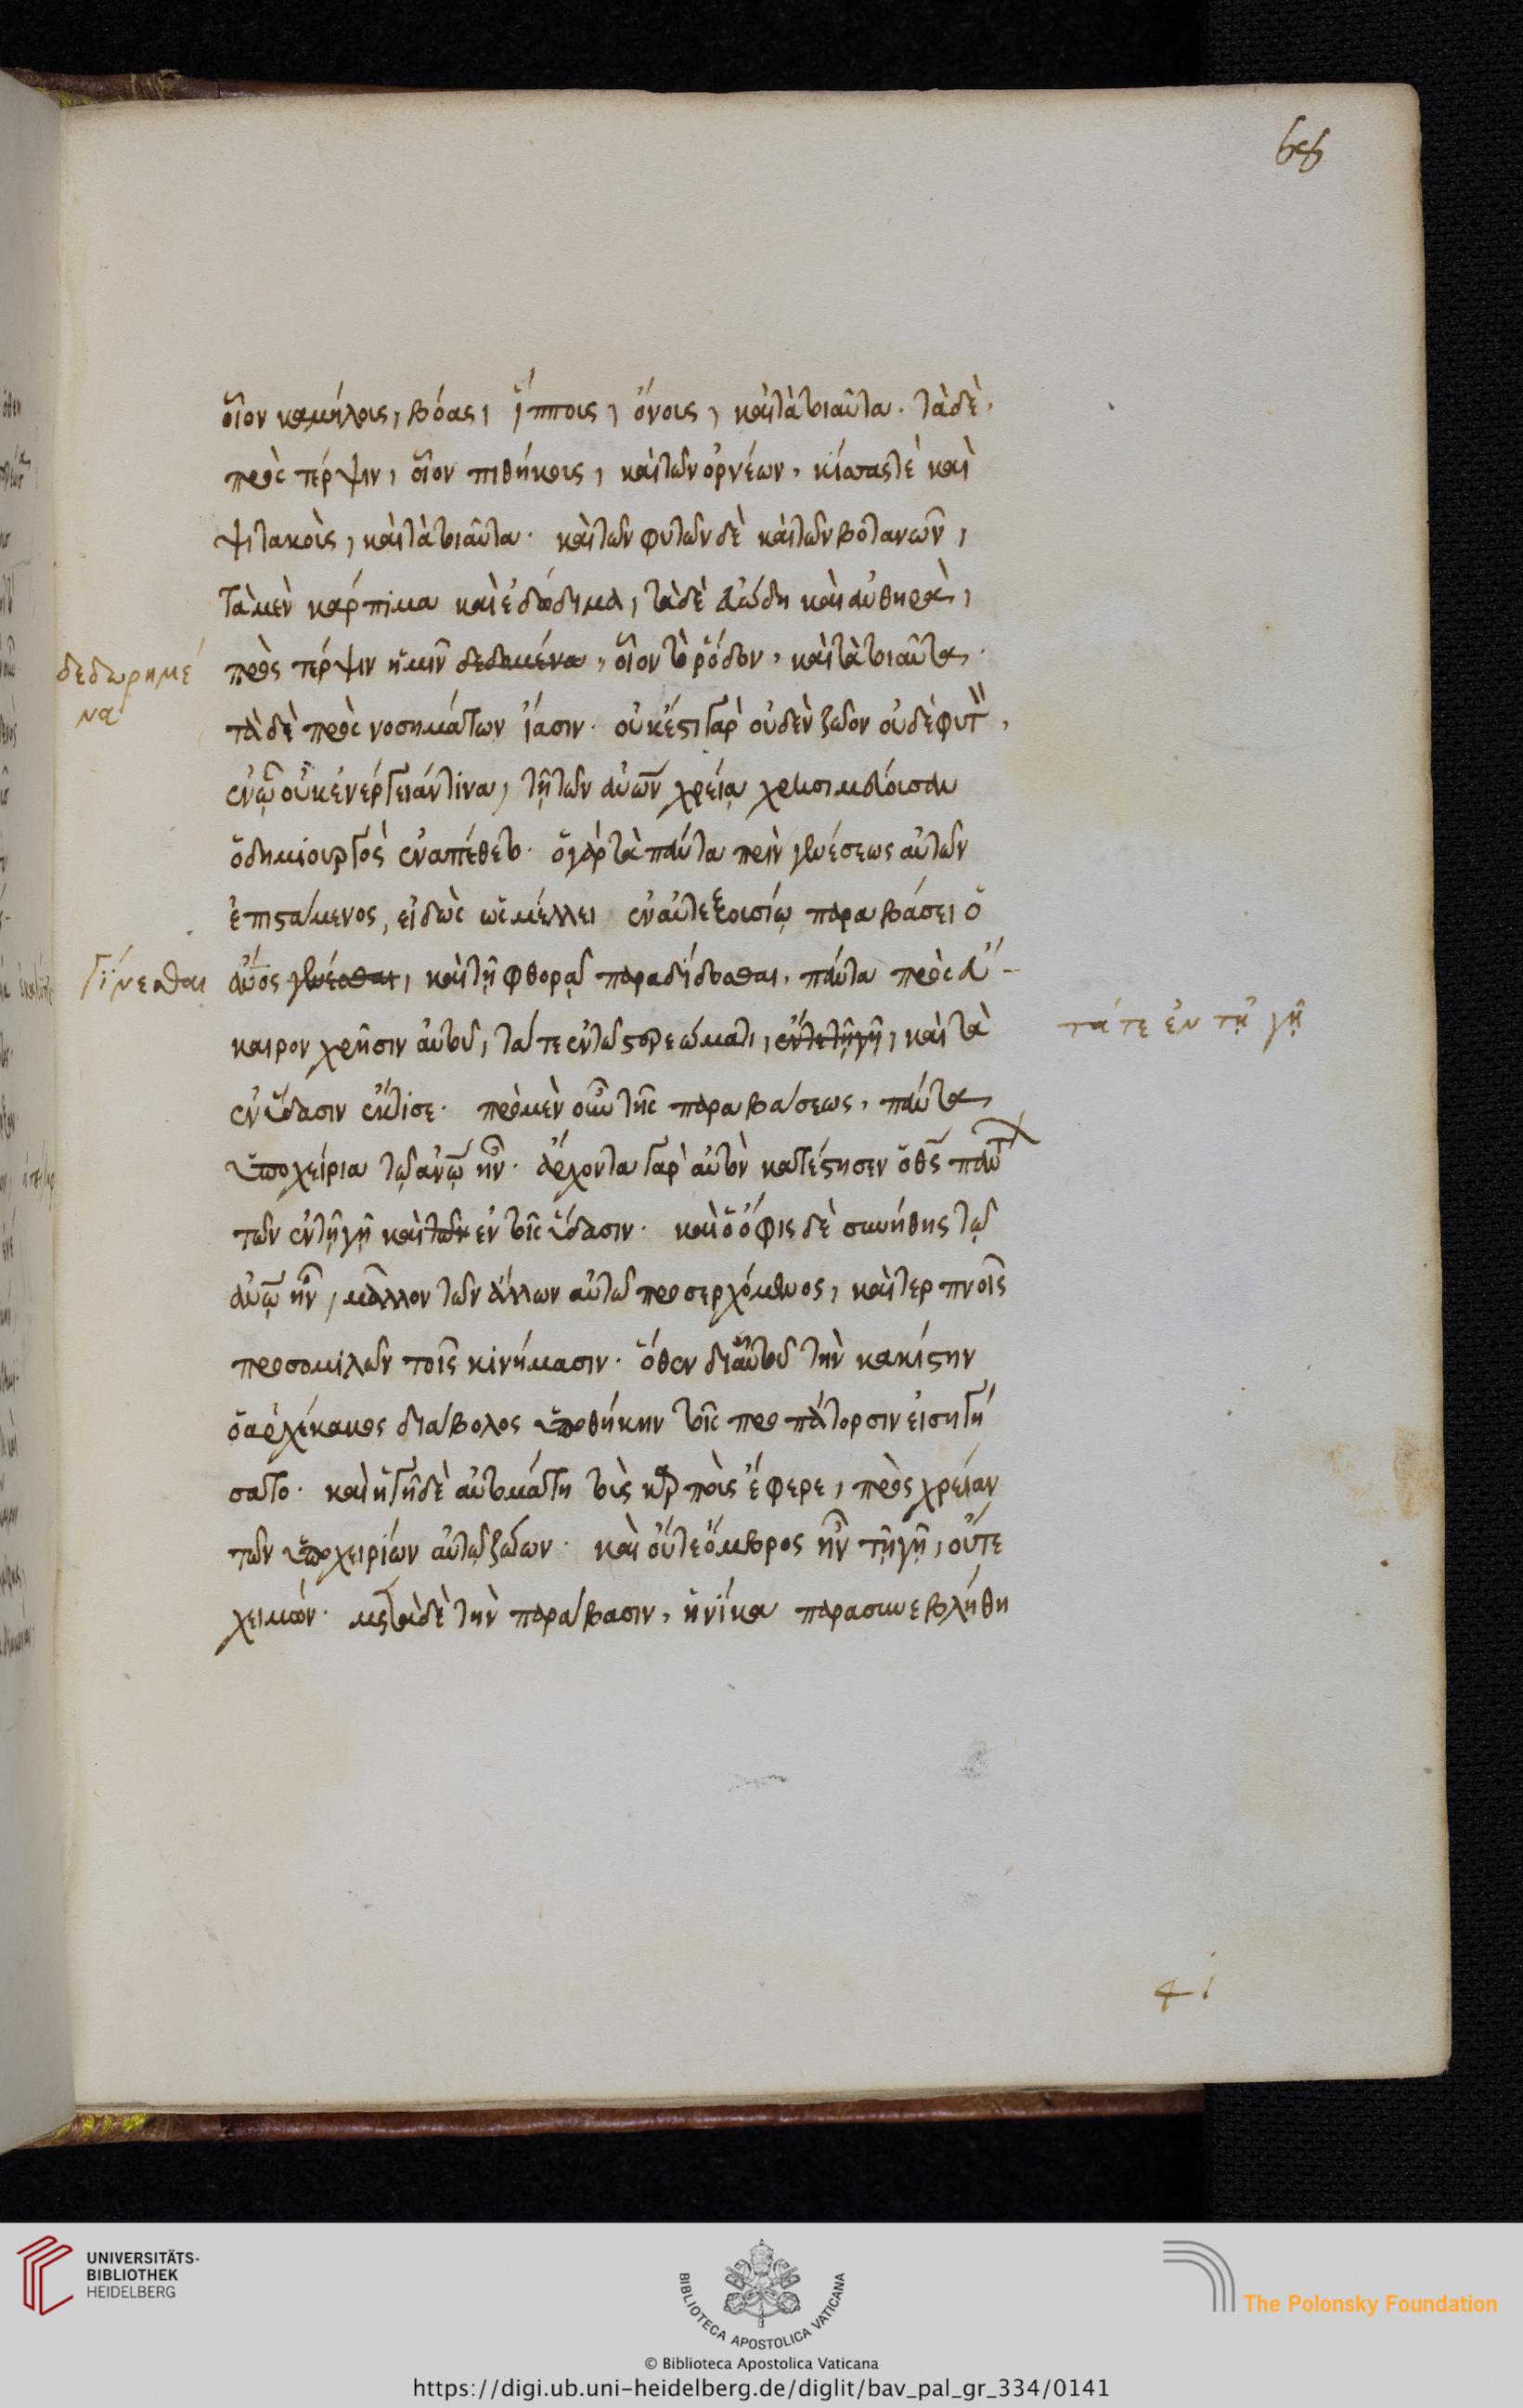 668
οἷον καμήλοις, βόας, ἵπποις, ὄνοις, καὶ τὰ τοιαῦτα. τὰ δὲ,
πρὸς τέρψιν, οἷον πιθήκοις, καὶ τῶν ὀρνέων, κίσσας τὲ καὶ
ψιτακοὺς, καὶ τὰ τοιαῦτα. καὶ τῶν φυτῶν δὲ καὶ τῶν βοτανῶν,
τὰ μὲν κάρπιμα καὶ ἐδώδιμα, τὰ δὲ εὐώδη καὶ ἀνθηρὰ,
πρὸς τέρψιν ἡμῖν δεδομένα, οἷον τὸ ῥόδον, καὶ τὰ τοιαῦτα.
δεδωρημέ
να
τὰ δὲ πρὸς νοσημάτων ἴασιν. οὐκ ἔστι γὰρ οὐδὲν ζῶον οὐδὲ φυτὸν,
ἐν ᾧ οὐκ ἐνέργειάν τινα, τῇ τῶν ἀνων χρεία χρησιμεύουσαν
ὁ δημιουργὸς ἐναπέθετο. ὁ γὰρ τὰ πάντα πρὶν γενέσεως αὐτῶν
ἐπιστάμενος, εἰδὼς ὡς μέλλει ἐν αὐτεξουσίω παραβάσει ὁ
ἄνος γενέσθαι, καὶ τῇ φθορᾷ παραδίδοσθαι, πάντα πρὸς εὔ-
γίνεσθαι
καιρον χρῆσιν αὐτοῦ, τά τε ἐν τῶ στερεώματι, ἔν τε τῇ γῇ, καὶ τὰ
τά τε ἐν τῇ γῇ
ἐν ὕδασιν ἔκτισε. πρὸ μὲν οὖν τῆς παραβάσεως, πάντα
ὑποχείρια τῷ ἀνῳ ἦν. ἄρχοντα γὰρ αὐτὸν κατέστησεν ὁ θς πάν
των ἐν τῇ γῇ καὶ τῶν ἐν τοῖς ὕδασιν. καὶ ὁ ὄφις δὲ συνήθης τῷ
ἀνῳ ἦν, μᾶλλον τῶν ἄλλων αὐτῶ προσερχόμενος, καὶ τερπνοῖς
προσομιλῶν τοῖς κινήμασιν. ὅθεν δι' αὐτοῦ τὴν κακίστην
ὁ ἀρχέκακος διάβολος ὑποθήκην τοῖς προπάτορσιν εἰσηγή
σατο. καὶ ἡ γῆ δὲ αὐτομάτη τοὺς καρποὺς ἔφερε, πρὸς χρείαν
τῶν ὑποχειρίων αὐτῷ ζώων. καὶ οὔτε ὄμβρος ἦν τῇ γῇ, οὔτε
χειμών. μετὰ δὲ τὴν παράβασιν, ἡνίκα παρασυνεβλήθη
41
UNIVERSITÄTS-
BIBLIOTHEK
HEIDELBERG
BIBLIOTECA APOSTOLICA VATICANA
The Polonsky Foundation
© Biblioteca Apostolica Vaticana
https://digi.ub.uni-heidelberg.de/diglit/bav_pal_gr_334/0141